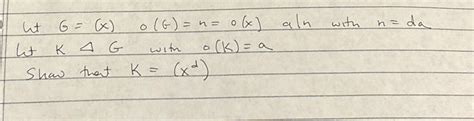 Let G = (x) o(G) = n = o(x) a|n with n = da
Let K ⊲ G with o(K) = a
Show that K = (x^d)